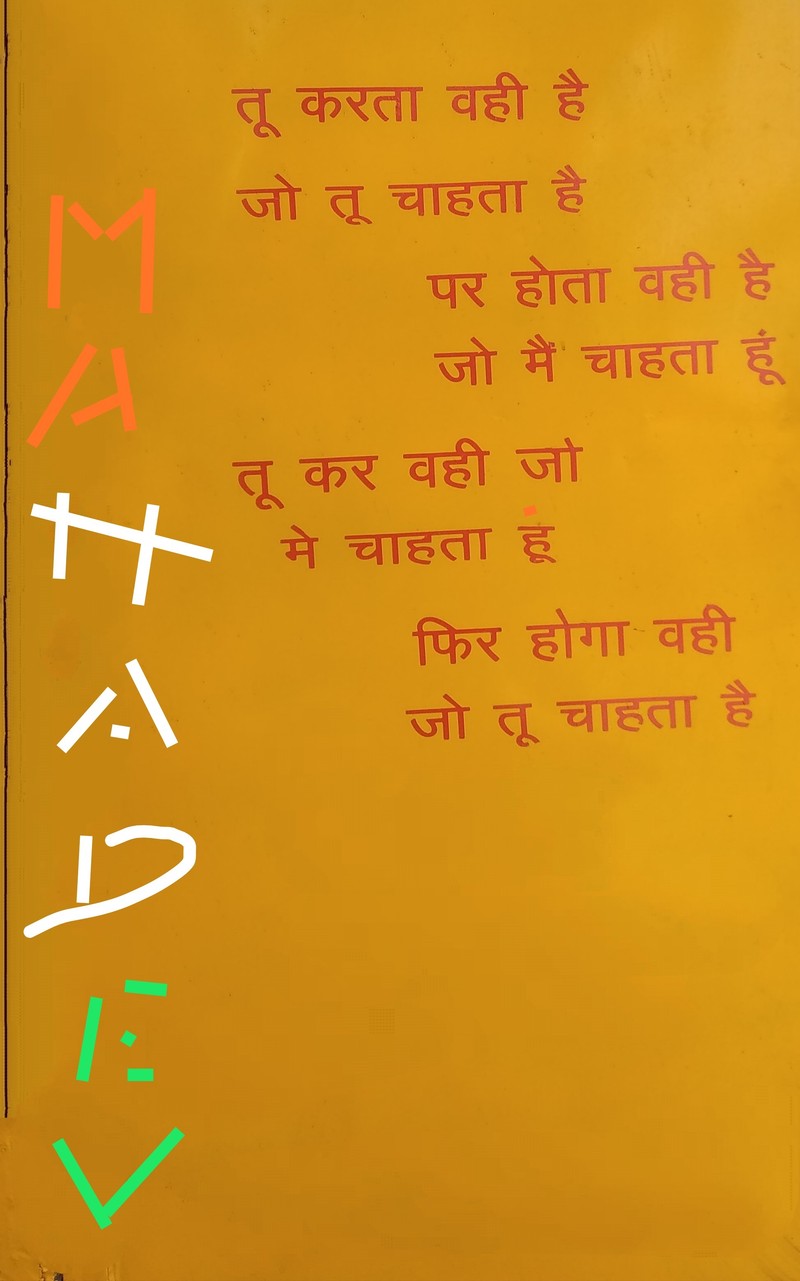 तू करता वही है
जो तू चाहता है
पर होता वही है
जो मैं चाहता हूं
तू कर वही जो
मे चाहता हूं
फिर होगा वही
जो तू चाहता है
MAHADEV